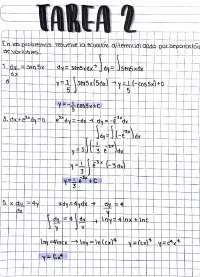 TAREA 2
En los problemas resuelva la ecuación diferencial dada por separación
de variables.
1. dy/dx = sen5x dy = sen5x dx ∫dy = ∫sen5x dx
y = 1/5 ∫sen5x(5dx) → y = 1/5(-cos5x) + C
y = -1/5 cos5x + C
3. dx + e³ˣdy = 0 e³ˣdy = -dx → dy = -e⁻³ˣdx
∫dy = ∫(-e⁻³ˣ)dx
y = 1/3 ∫e⁻³ˣ(-3dx)
y = 1/3 e⁻³ˣ + C
5. x dy/dx = 4y xdy = 4ydx → dy/y = 4
∫dy/y = 4∫dx/x → lny = 4lnx + lnc
y = Cx⁴